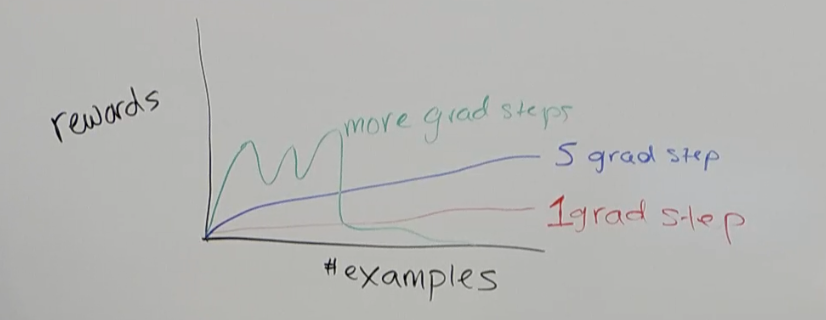 rewards
more grad steps
5 grad step
1 grad step
#examples